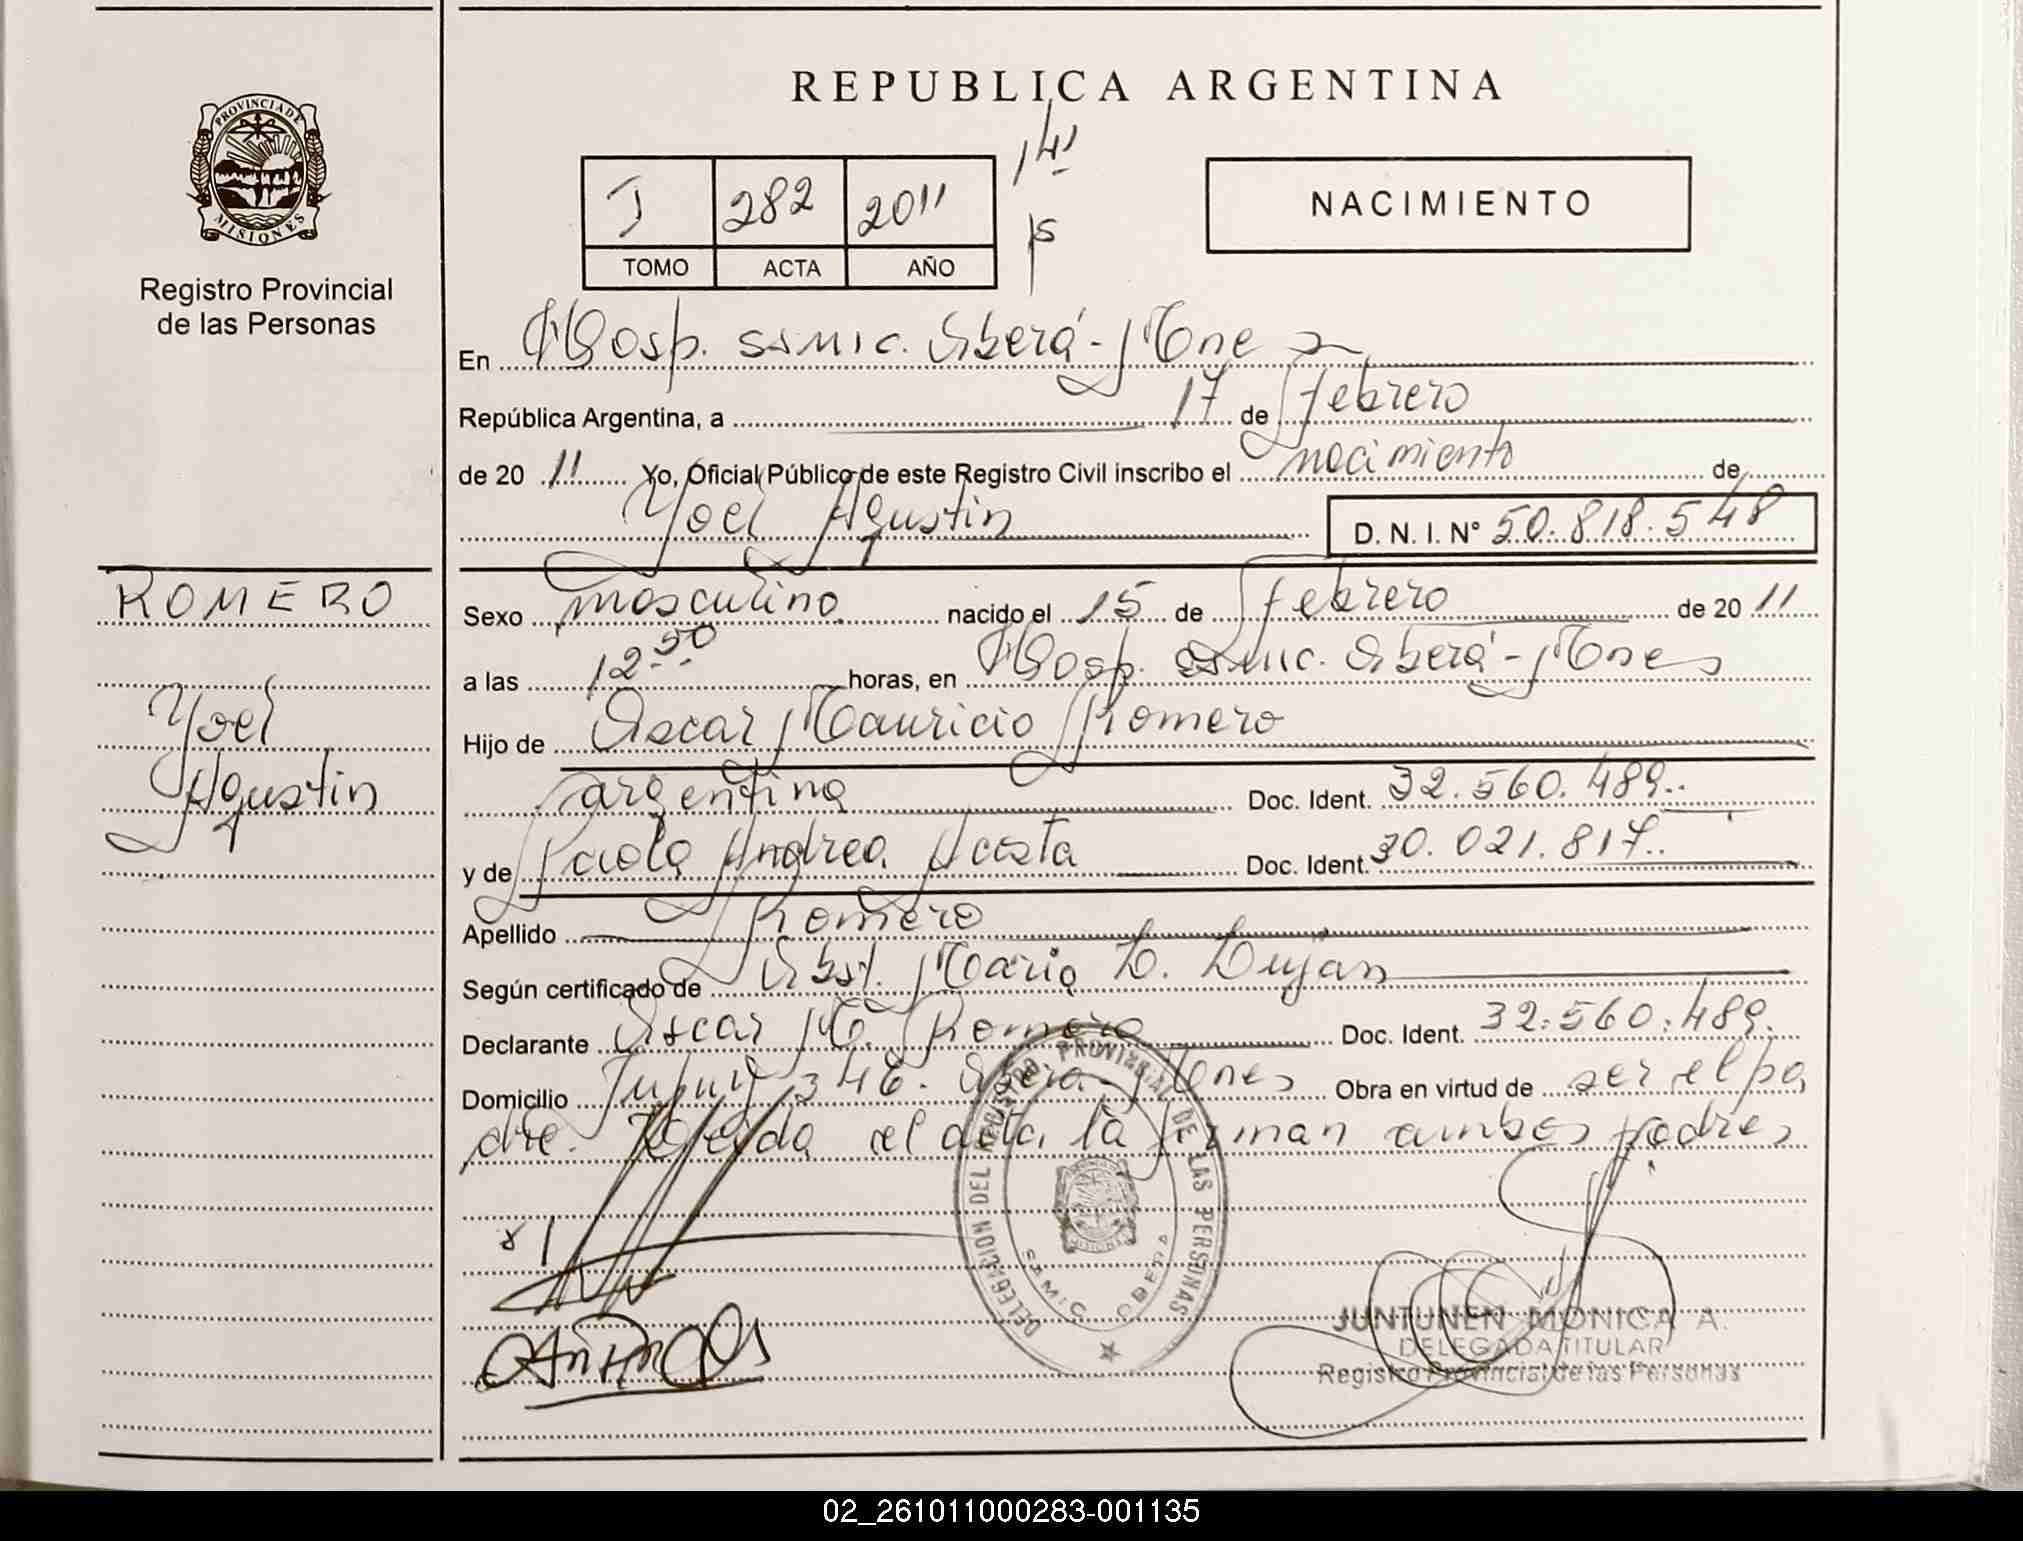 PROVINCIA DE MISIONES
Registro Provincial
de las Personas
ROMERO
Yoel
Agustin
REPUBLICA ARGENTINA
I 282 2011
TOMO ACTA AÑO
NACIMIENTO
En Hosp. Samic. Oberá-Mnes
República Argentina, a 17 de febrero
de 20 11 Yo, Oficial Público de este Registro Civil inscribo el nacimiento de
Yoel Agustin D. N. I. N° 50.818.548
Sexo masculino nacido el 15 de febrero de 20 11
a las 12:50 horas, en Hosp. Samic. Oberá-Mnes
Hijo de Oscar Mauricio Romero
argentina Doc. Ident. 32.560.489
y de Paola Andrea Acosta Doc. Ident. 30.021.817
Apellido Romero
Según certificado de Obst. Maria D. Lujan
Declarante Oscar M. Romero Doc. Ident. 32.560.489
Domicilio Jujuy 346. Oberá-Mnes Obra en virtud de ser el pa
dre. Leida el acta, la firman ambos padres
DELEGACION DEL REGISTRO PROVINCIAL DE LAS PERSONAS
SAMIC OBERA
JUNTUNEN MONICA A.
DELEGADA TITULAR
Registro Provincial de las Personas
02_261011000283-001135